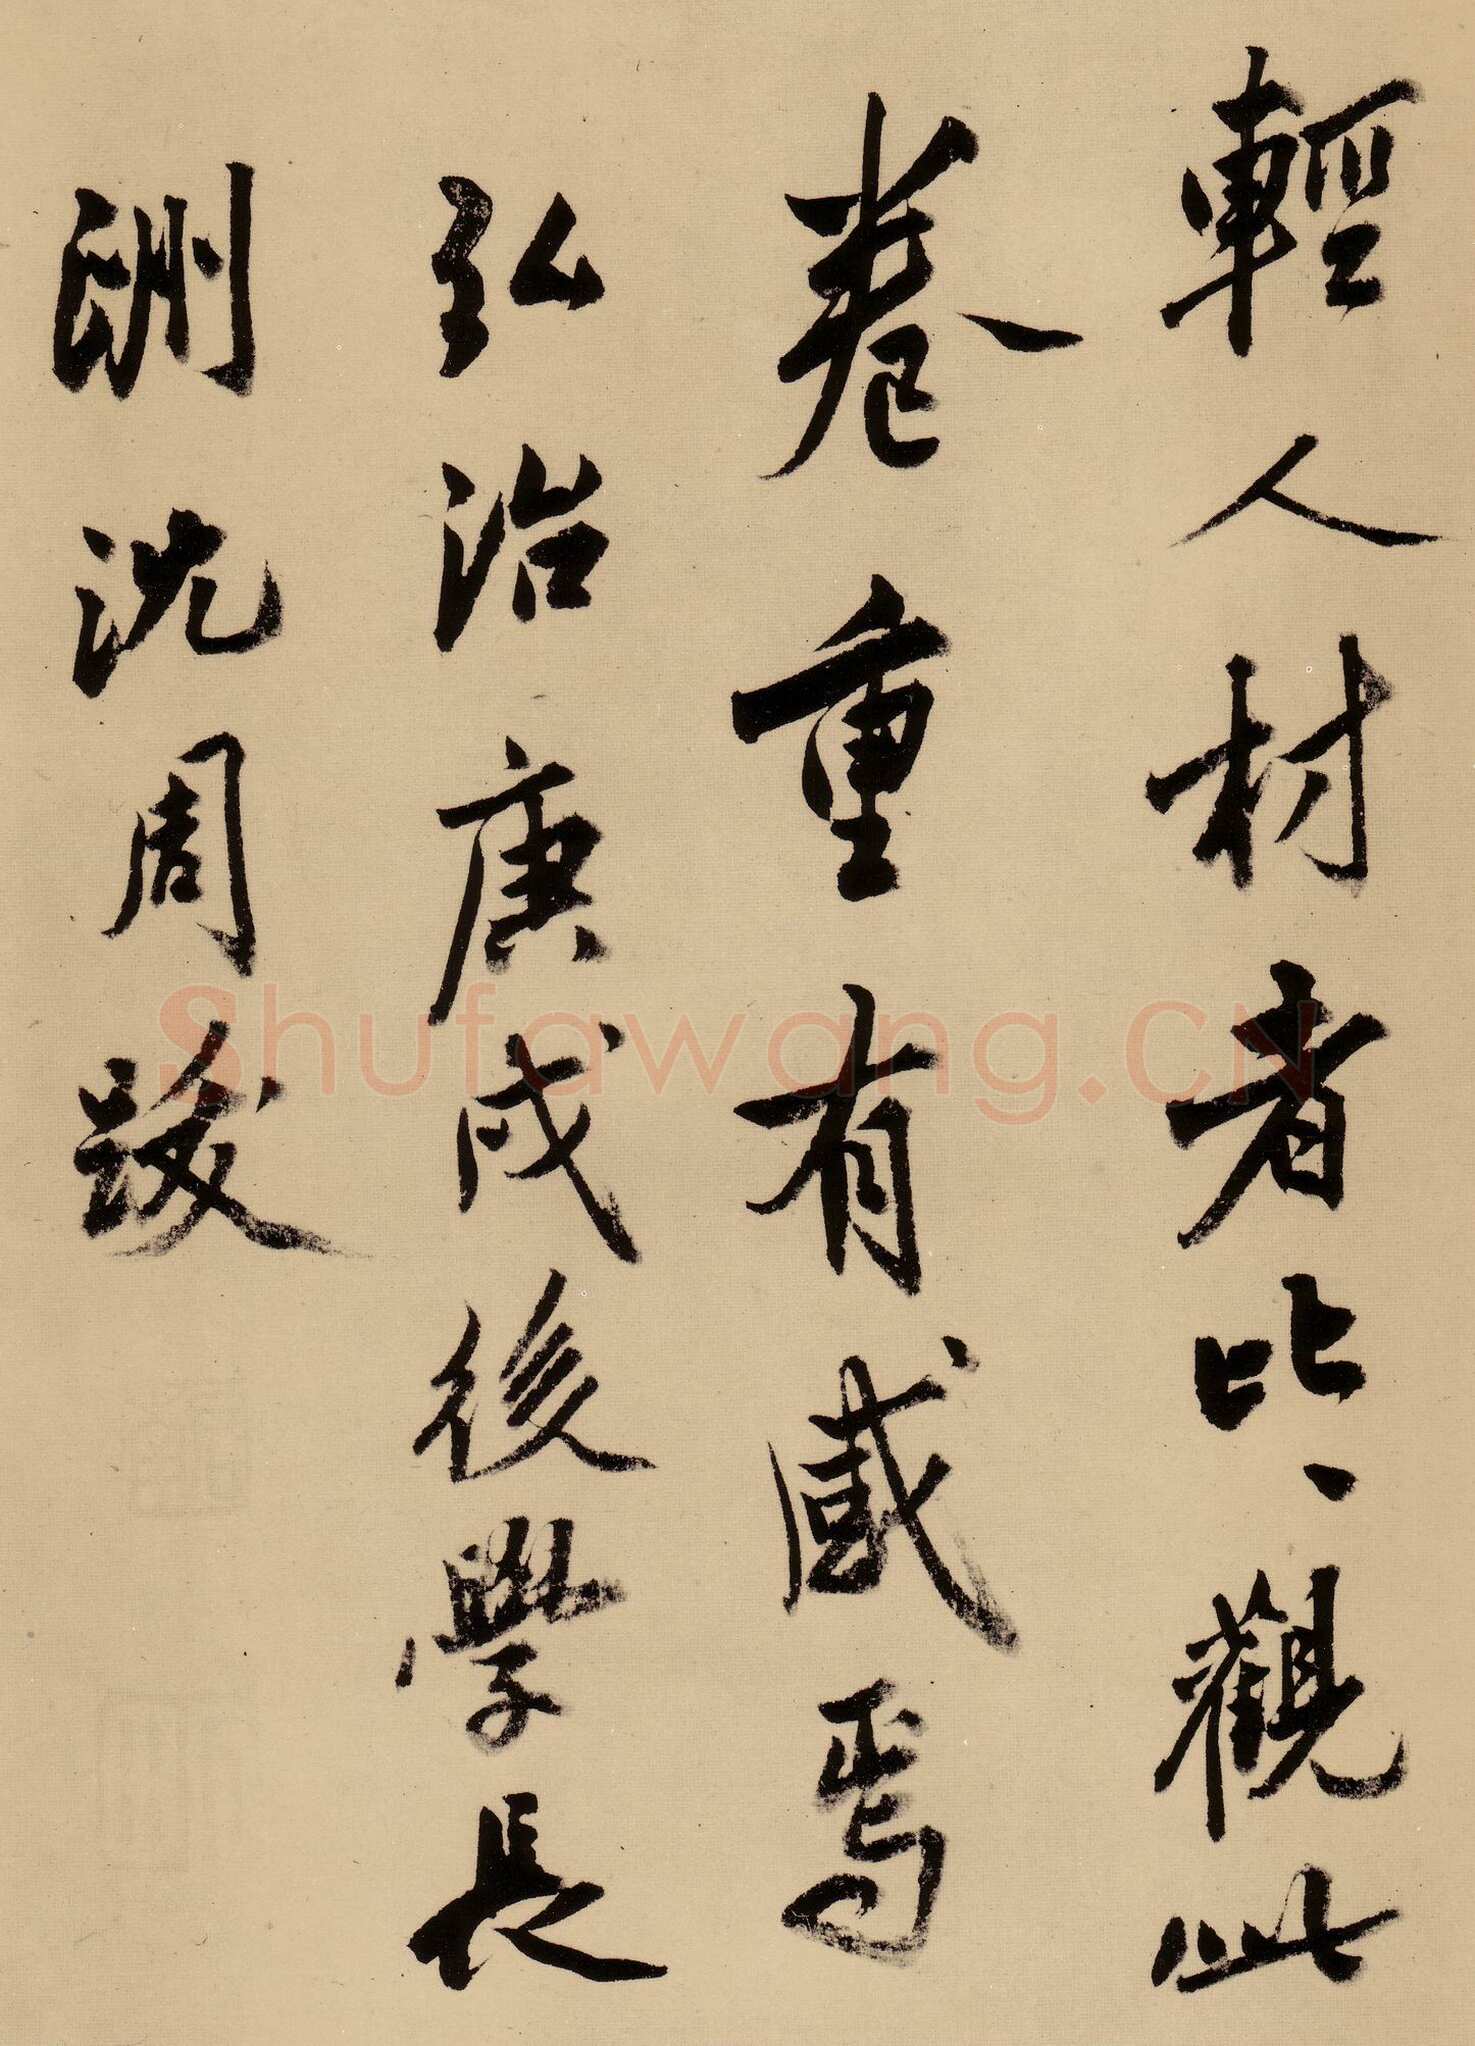 輕人材者比比觀此
卷重有感焉
弘治庚戌後學長
洲沈周跋
Shufawang.CN